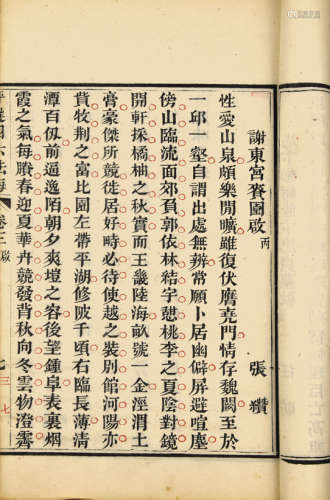 謝東宮賚園啟 丙
張纘
性愛山泉頗樂閒曠雖復伏膺堯門情存魏闕至於
一邱一壑自謂出處無辨常願卜居幽僻屏避喧塵
傍山臨流面郊負郭依林結宇憩桃李之夏陰對鏡
開軒採橘柚之秋實而王畿陸海畝號一金涇渭土
膏豪傑所競徙居好時必待使越之裝別館河陽亦
資牧荆之富比園左帶平湖修陂千頃右臨長薄清
潭百仞前逼逸陌朝夕爽塏之容後望鍾阜表裏烟
霞之氣每賸春迎夏華卉競發背秋向冬雲物澄霽
卷三 啟
三七
七